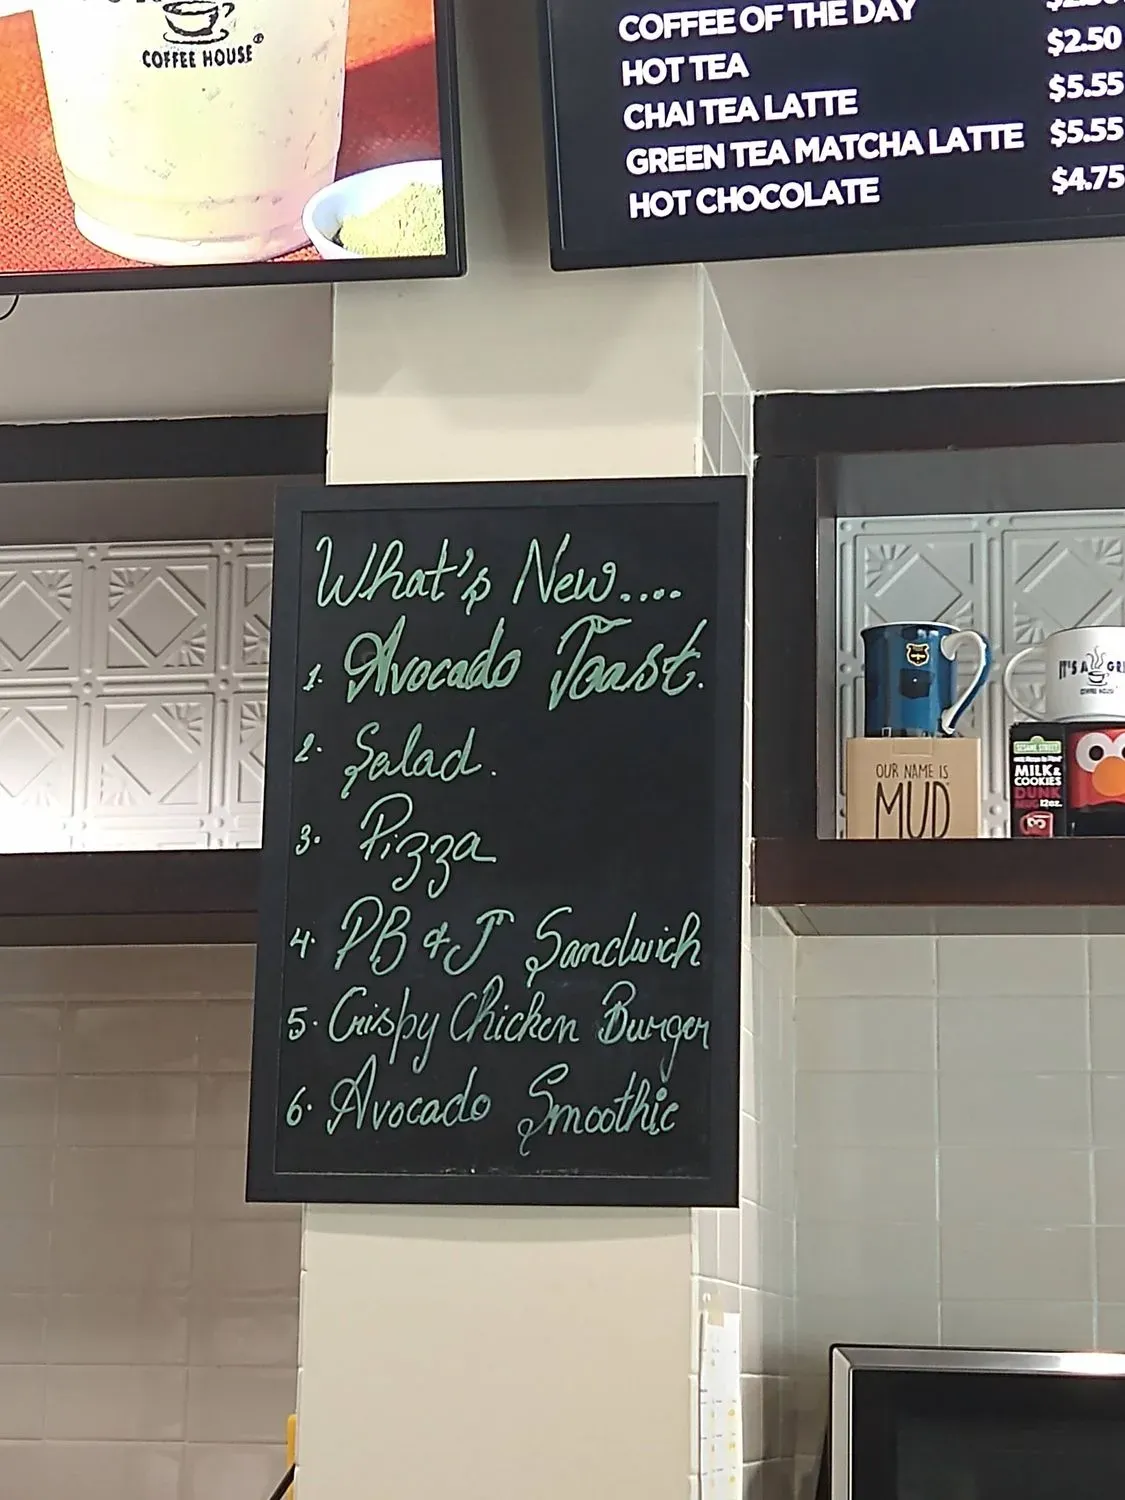 COFFEE HOUSE
COFFEE OF THE DAY
HOT TEA $2.50
CHAI TEA LATTE $5.55
GREEN TEA MATCHA LATTE $5.55
HOT CHOCOLATE $4.75
What's New....
1. Avocado Toast.
2. Salad.
3. Pizza
4. PB & J Sandwich
5. Crispy Chicken Burger
6. Avocado Smoothie
IT'S A GR
COFFEE HOUSE
OUR NAME IS
MUD
SESAME STREET
MILK &
COOKIES
DUNK
MUG 12oz.